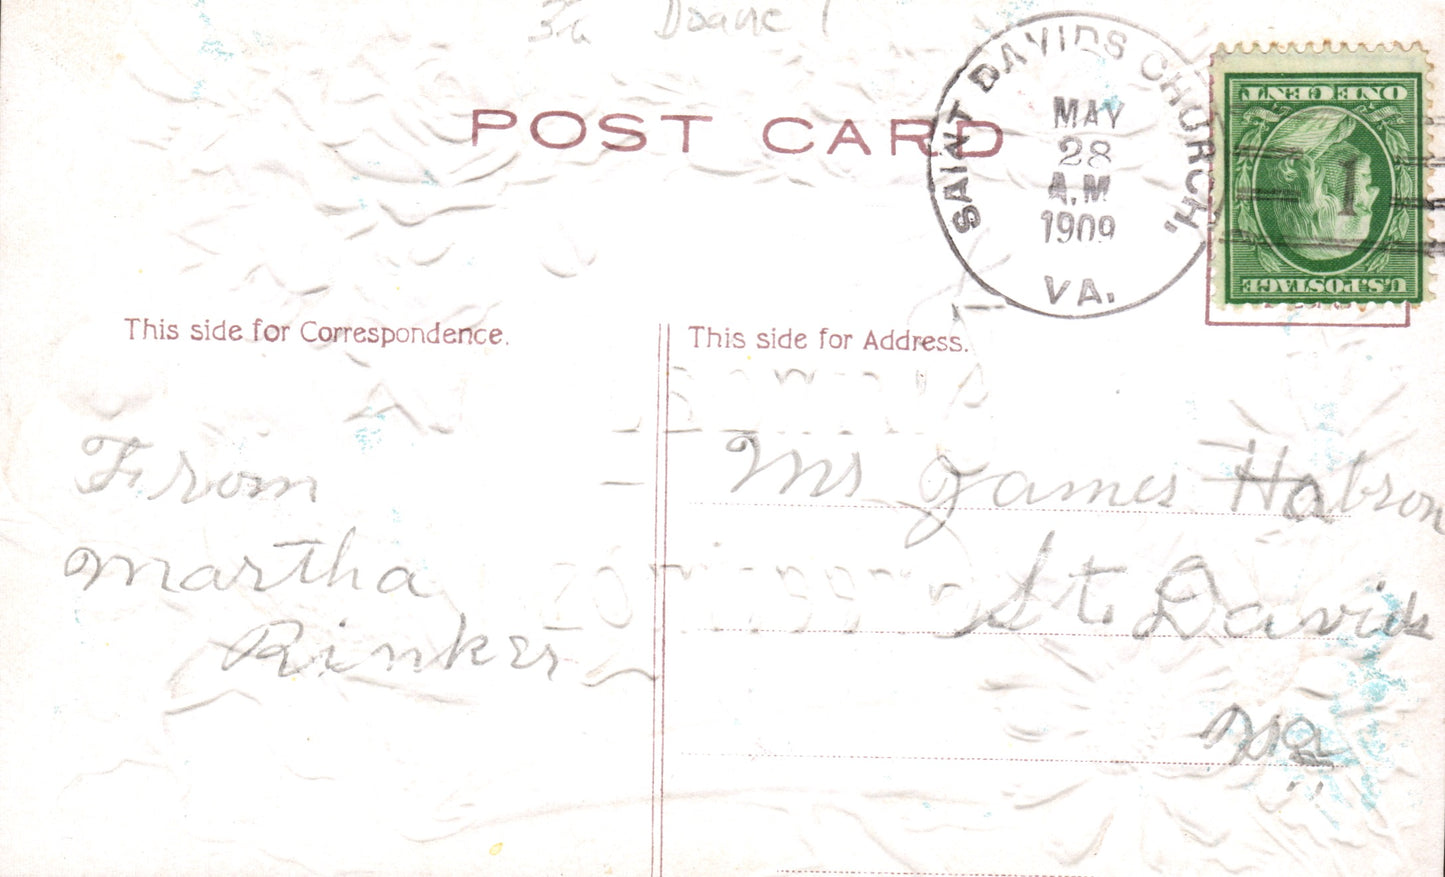 Doane 1
POST CARD
SAINT DAVIDS CHURCH,
MAY
28
A.M
1909
VA.
1
ONE CENT
U.S. POSTAGE
This side for Correspondence.
This side for Address.
From
Martha
Rinker
Mrs James Habron
St. Davids